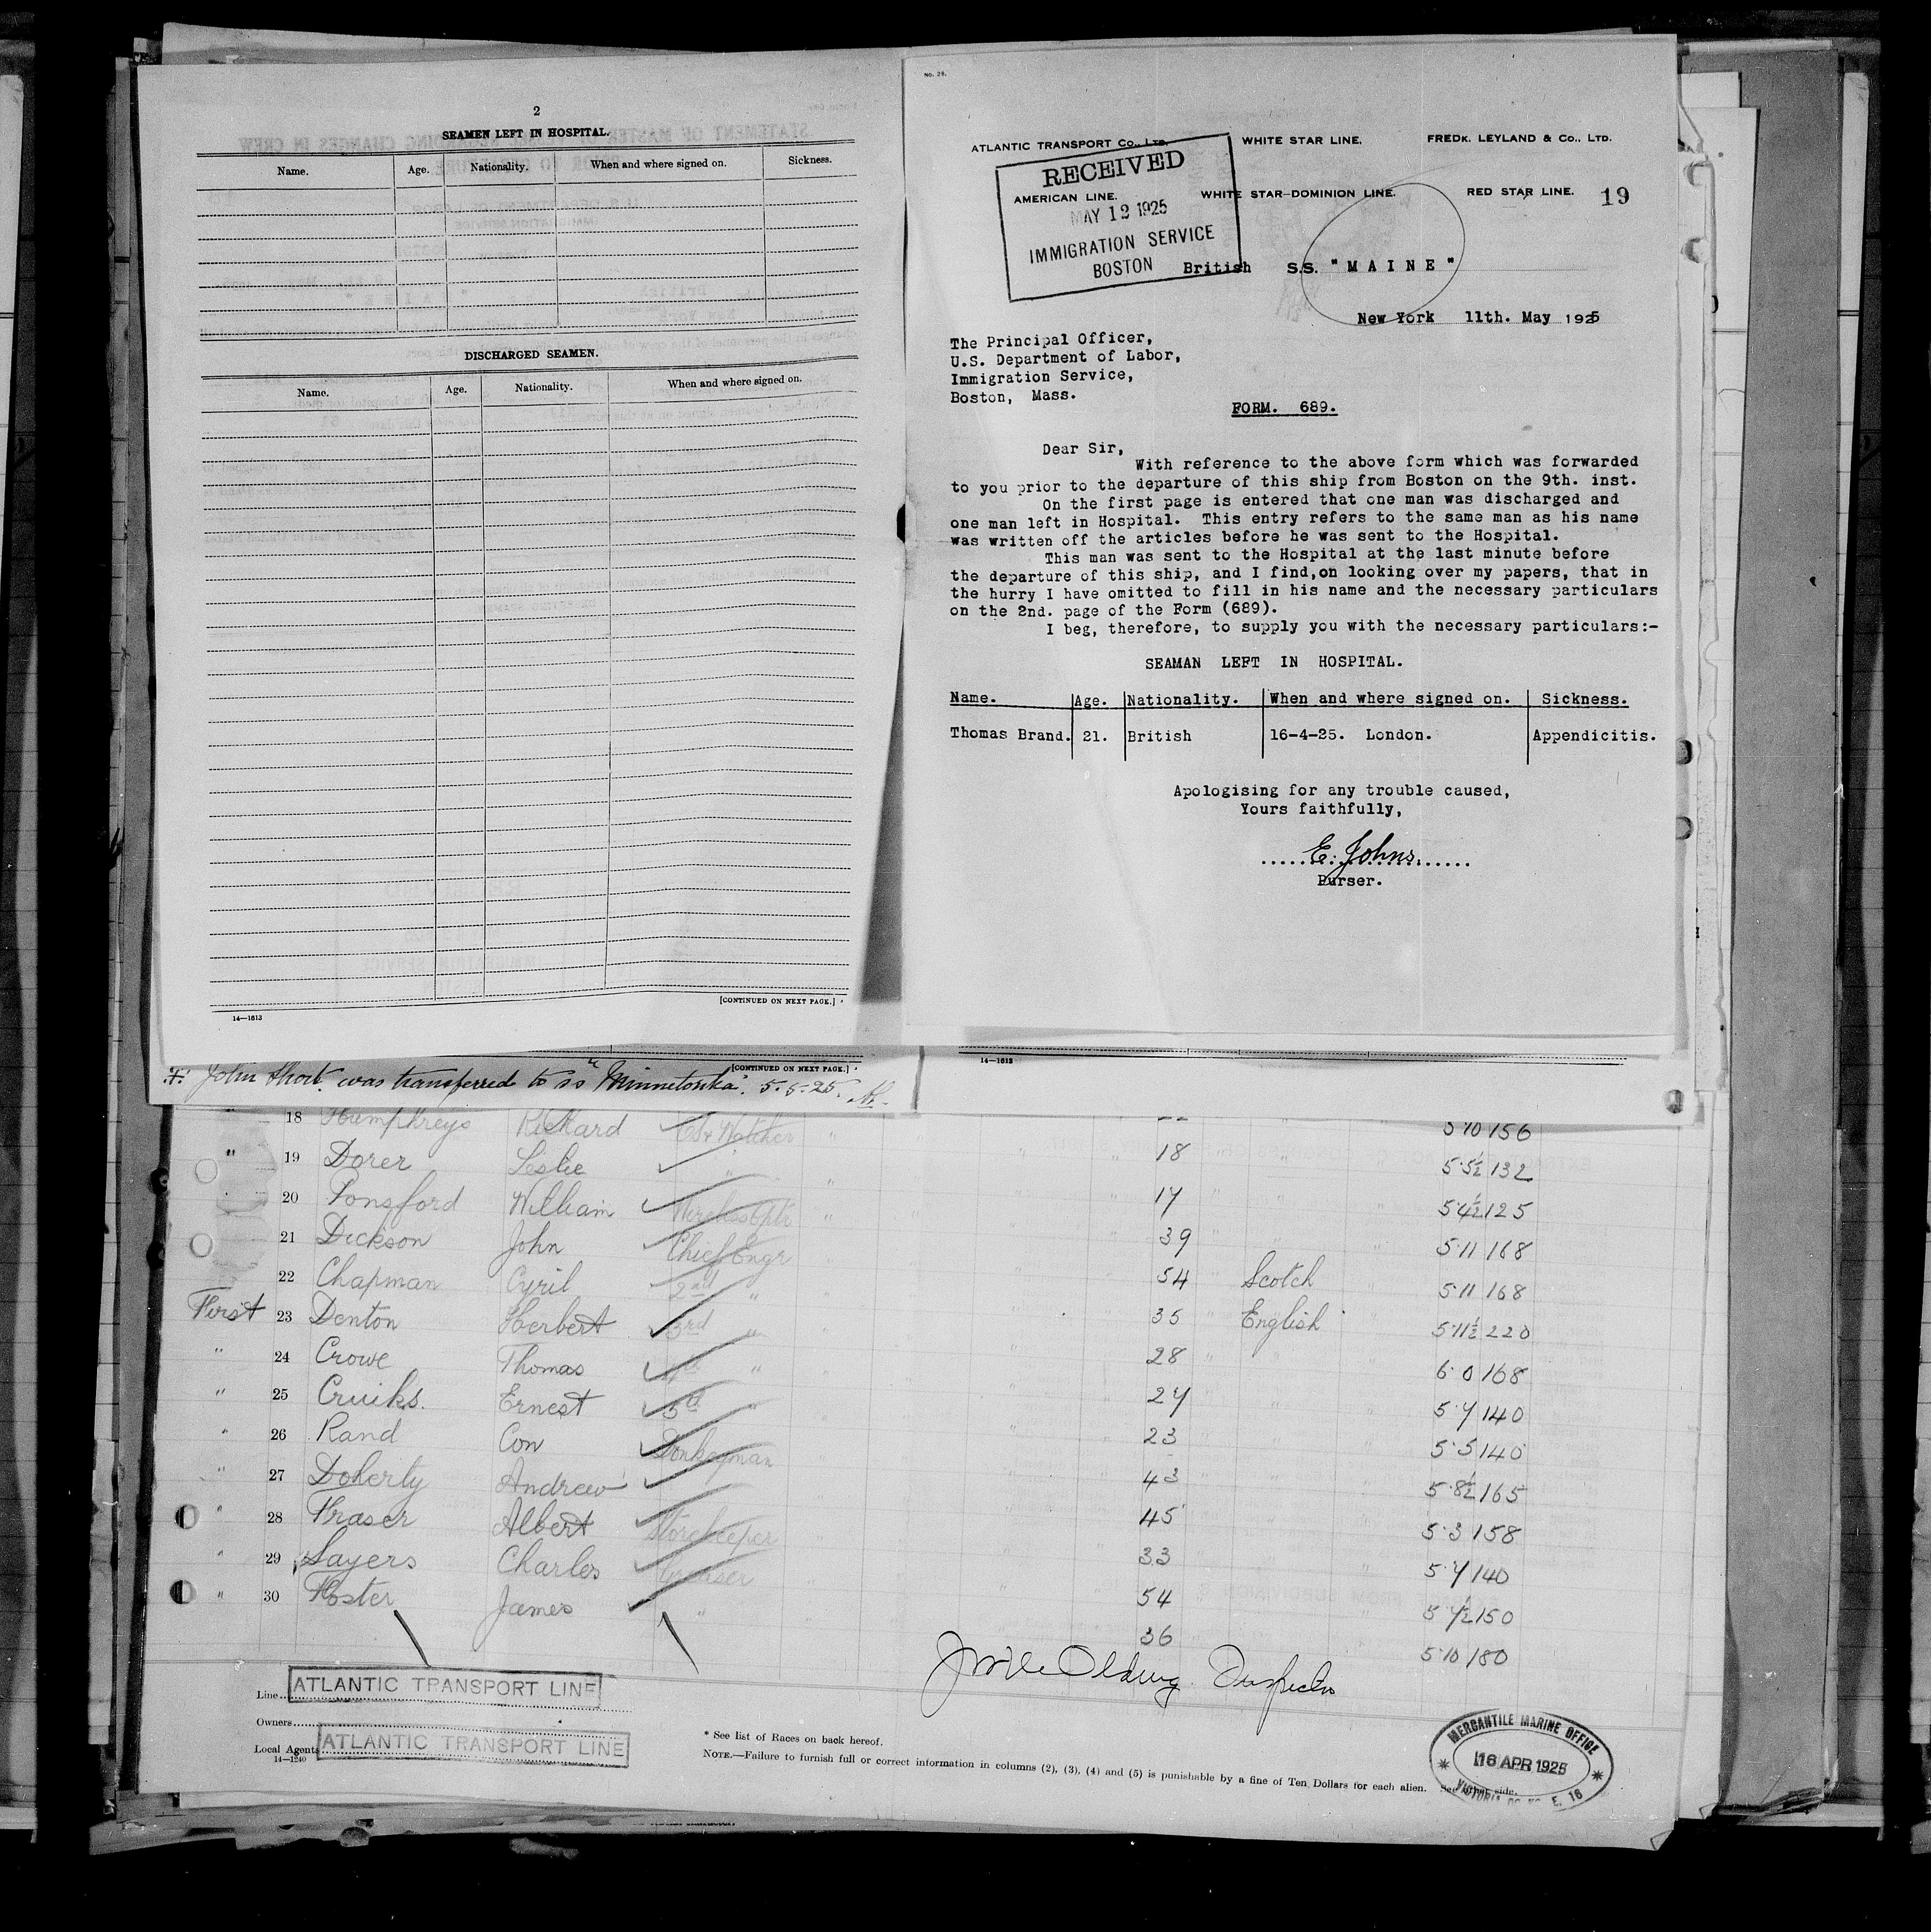 2
SEAMEN LEFT IN HOSPITAL.
Name. Age. Nationality. When and where signed on. Sickness.
DISCHARGED SEAMEN.
Name. Age. Nationality. When and where signed on.
[CONTINUED ON NEXT PAGE.]
14—1613
No. 28.
ATLANTIC TRANSPORT Co., LTD. WHITE STAR LINE. FREDK. LEYLAND & Co., LTD.
AMERICAN LINE. WHITE STAR-DOMINION LINE. RED STAR LINE. 19
RECEIVED
MAY 12 1925
IMMIGRATION SERVICE
BOSTON
British S.S. "MAINE"
New York 11th. May 1925
The Principal Officer,
U.S. Department of Labor,
Immigration Service,
Boston, Mass.
FORM. 689.
Dear Sir,
With reference to the above form which was forwarded
to you prior to the departure of this ship from Boston on the 9th. inst.
On the first page is entered that one man was discharged and
one man left in Hospital. This entry refers to the same man as his name
was written off the articles before he was sent to the Hospital.
This man was sent to the Hospital at the last minute before
the departure of this ship, and I find,on looking over my papers, that in
the hurry I have omitted to fill in his name and the necessary particulars
on the 2nd. page of the Form (689).
I beg, therefore, to supply you with the necessary particulars:-
SEAMAN LEFT IN HOSPITAL.
Name. Age. Nationality. When and where signed on. Sickness.
Thomas Brand. 21. British 16-4-25. London. Appendicitis.
Apologising for any trouble caused,
Yours faithfully,
E. Johns
Purser.
[CONTINUED ON NEXT PAGE.]
14—1613
John Short was transferred to ss "Minnetonka". 5.5.25.
18 Humphreys Richard Watcher 5 10 156
" 19 Dorer Leslie " 18 5·5½ 132
20 Ponsford William Wireless Optr 17 5·4½ 125
21 Dickson John Chief Engr 39 5·11 168
22 Chapman Cyril 2nd " 54 Scotch 5·11 168
First 23 Denton Herbert 3rd " 35 English 5·11½ 220
" 24 Crowe Thomas " 28 6·0 168
" 25 Cruiks. Ernest 5th " 27 5·7 140
" 26 Rand Con Donkeyman 23 5·5 140
" 27 Doherty Andrew 43 5·8½ 165
" 28 Fraser Albert Storekeeper 45 5·3 158
" 29 Sayers Charles Greaser 33 5·7 140
" 30 Foster James " 54 5 7½ 150
36 5·10 180
Olding Inspector
Line ATLANTIC TRANSPORT LINE
Owners
Local Agents ATLANTIC TRANSPORT LINE
14—1240
* See list of Races on back hereof.
NOTE.—Failure to furnish full or correct information in columns (2), (3), (4) and (5) is punishable by a fine of Ten Dollars for each alien. See other side.
MERCANTILE MARINE OFFICE
16 APR 1925
VICTORIA DOCK E. 16